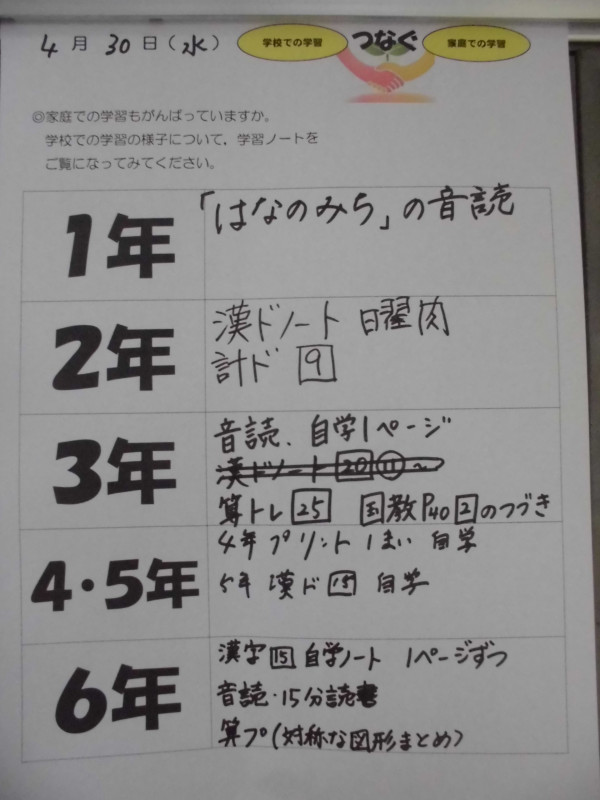 4月30日(水)
学校での学習
つなぐ
家庭での学習
◎家庭での学習もがんばっていますか。
学校での学習の様子について、学習ノートを
ご覧になってみてください。
1年
「はなのみち」の音読
2年
漢ドノート 日曜肉
計ド 9
3年
音読、自学1ページ
漢ドノート 20 11~
算トレ 25 国教P40 2のつづき
4・5年
4年 プリント 1まい 自学
5年 漢ド 15 自学
6年
漢字 15 自学ノート 1ページずつ
音読・15分読書
算プ(対称な図形まとめ)